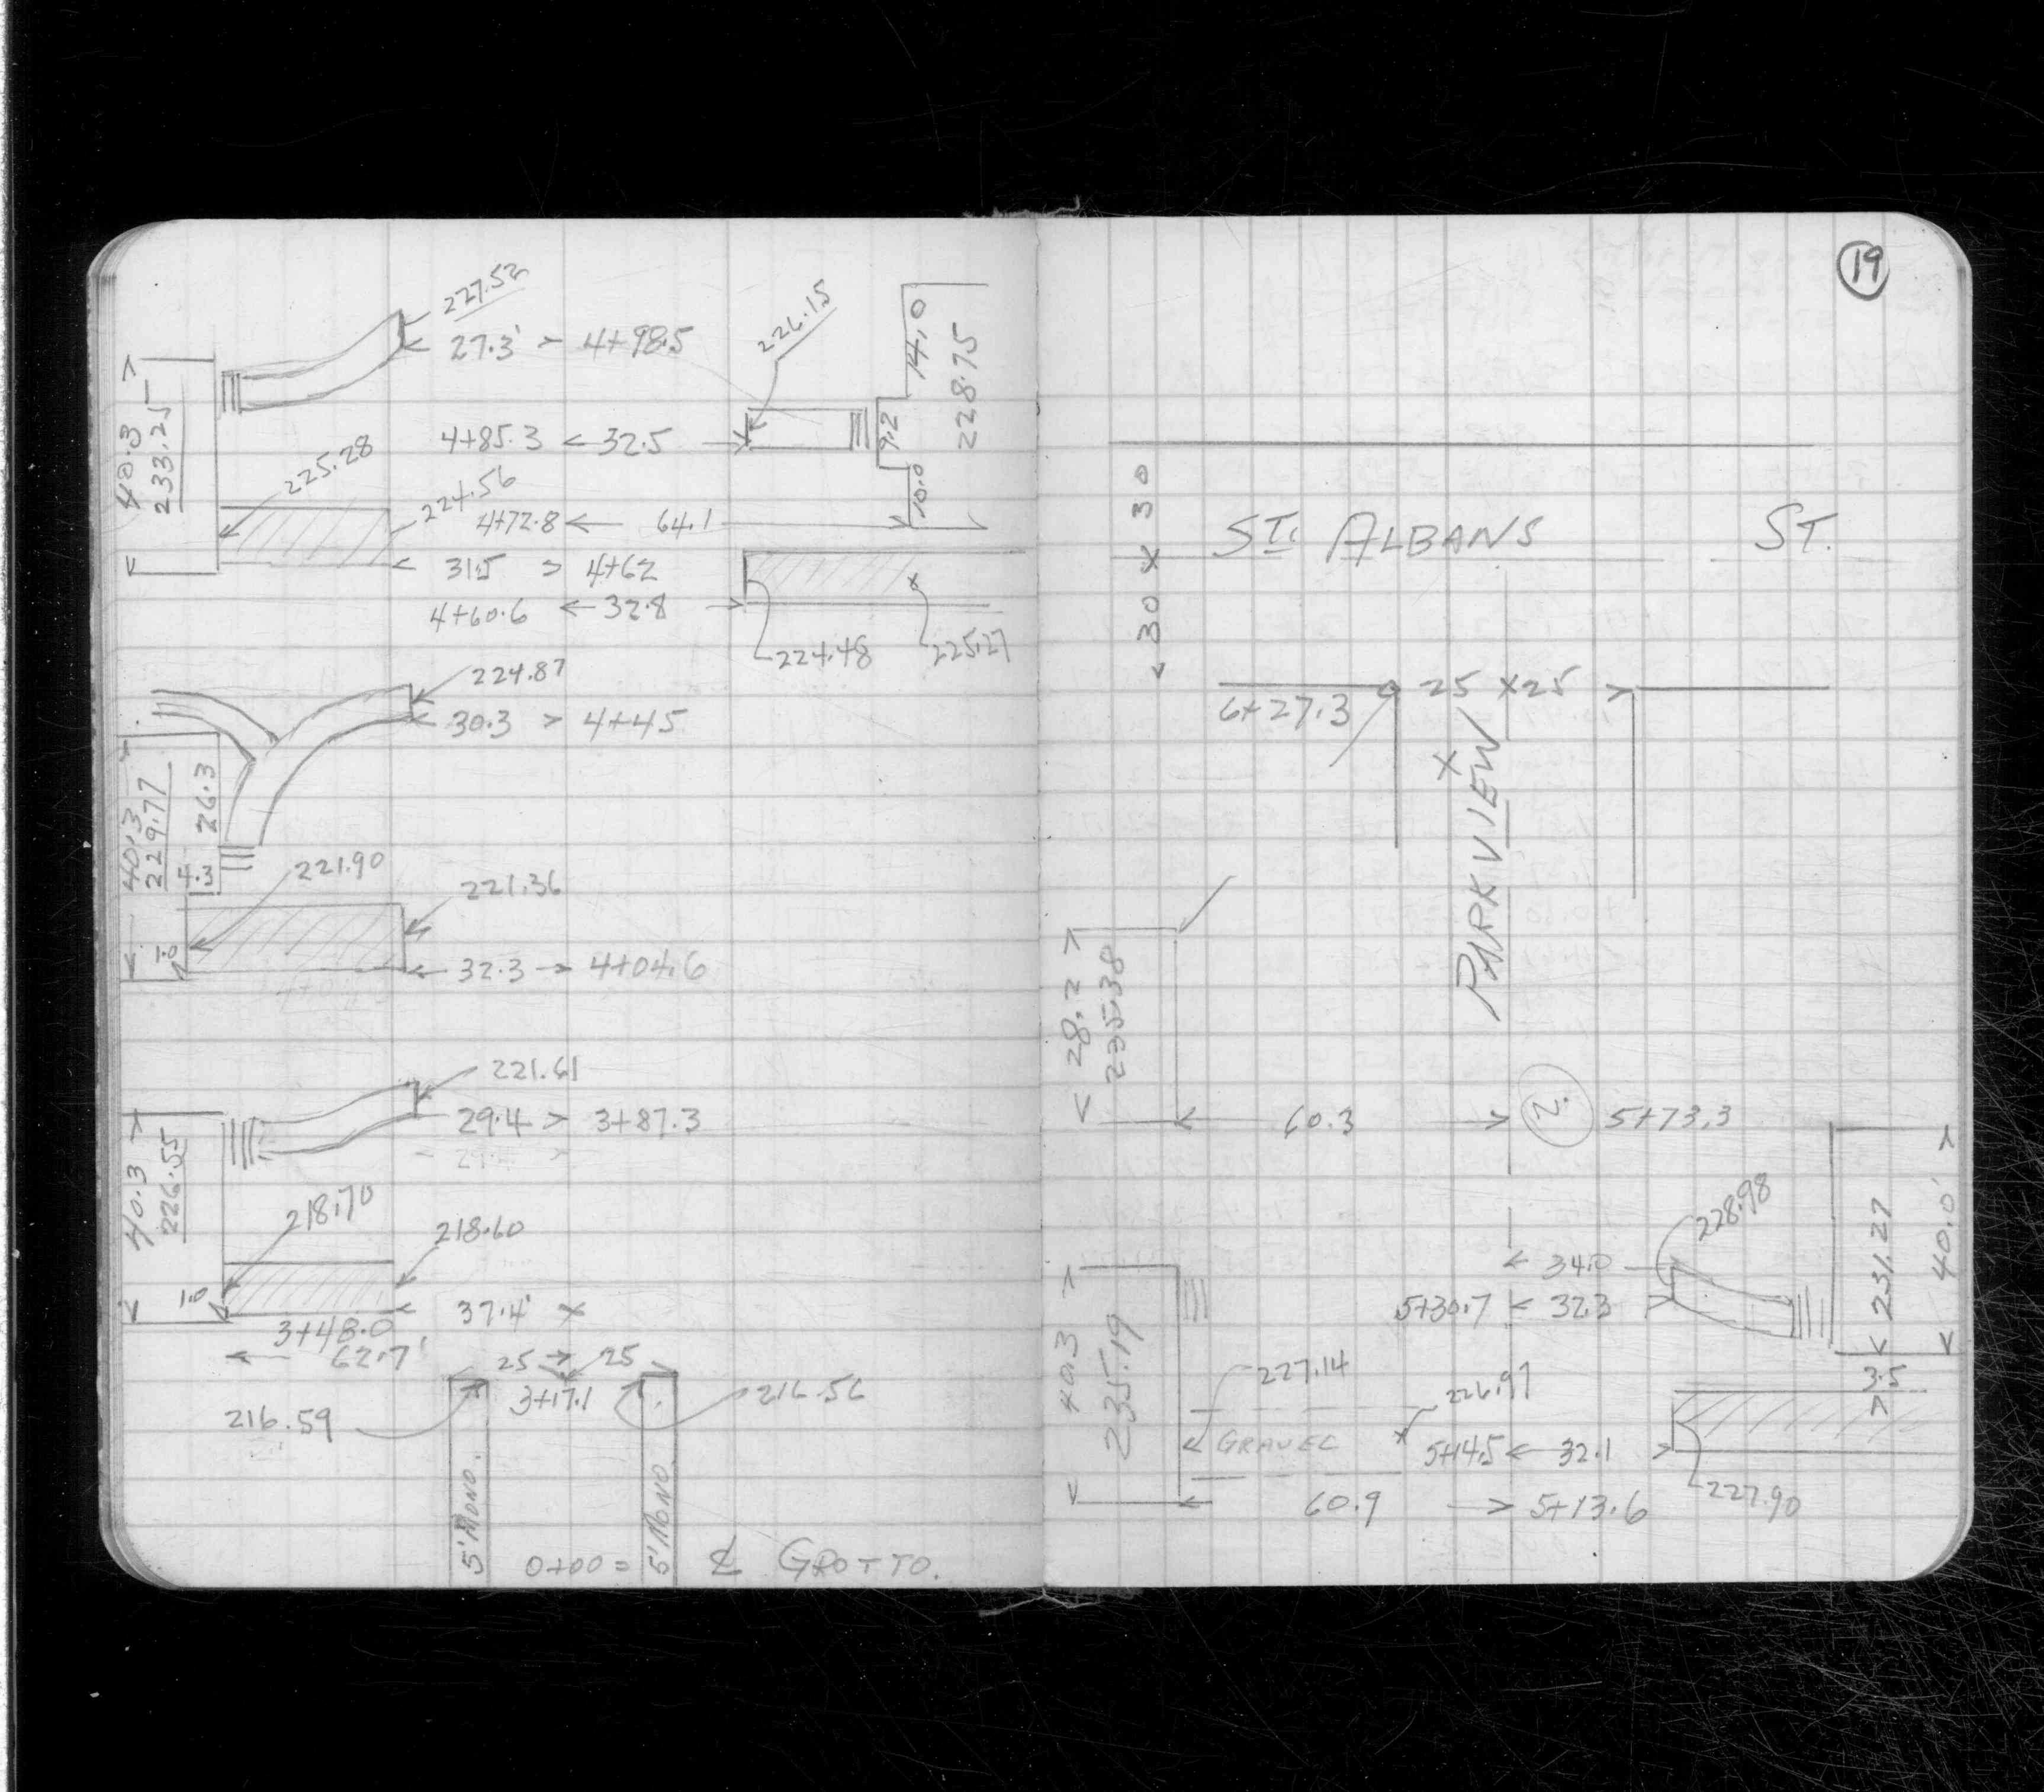 227.52
27.3' > 4+98.5
226.15
14.0
228.75
9.2
10.0
40.3
233.25
4+85.3 < 32.5
225.28
224.56
4+72.8 < 64.1
31.5 > 4+62
4+60.6 < 32.8
224.48
225.27
224.87
30.3 > 4+45
40.3
229.77
26.3
4.3
221.90
221.36
1.0
32.3 → 4+04.6
221.61
29.4 > 3+87.3
40.3
226.55
218.70
218.60
1.0
37.4'
3+48.0
62.7'
25 25
3+17.1
216.59
216.56
5' MONO.
5' MONO.
0+00 = ℄ GROTTO.
19
30 x 30
ST. ALBANS ST.
25 x 25
6+27.3
PARKVIEW
28.2
235.38
60.3
2.
5+73.3
228.98
34.0
5+30.7 < 32.3
231.27
40.0'
3.5
40.3
235.19
227.14
226.97
GRAVEL
5+14.5 < 32.1
227.90
60.9 → 5+13.6